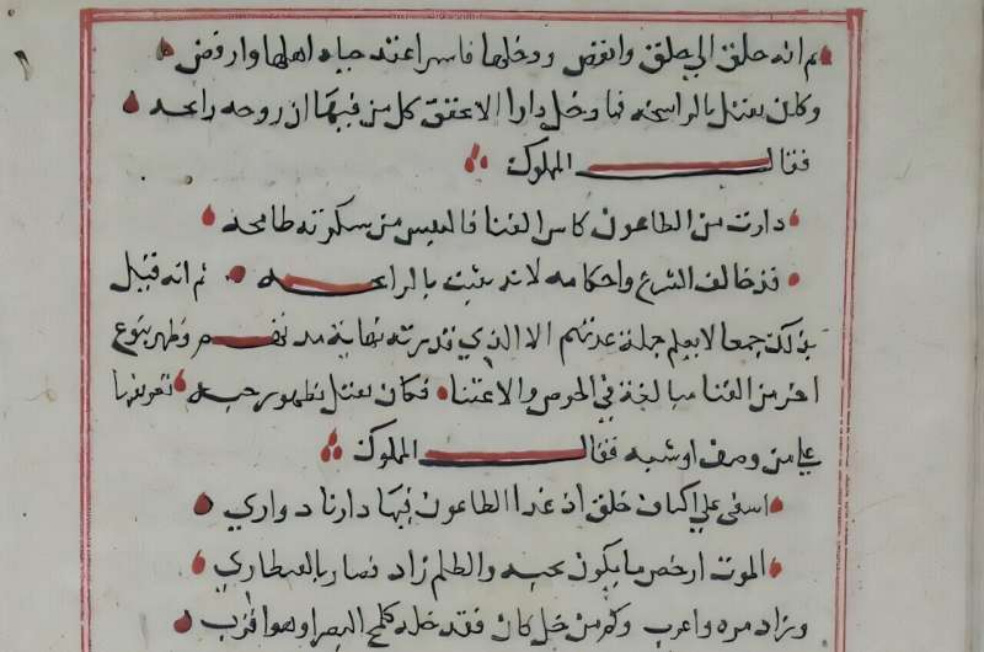 ثم انه حلق الي حلق وانغض ودخلها فاسرا عند جباه اهلها وارفض
وكان يقتل بالراسحه فما دخل دارا الا اعتق كل من فيها ان روحه رايحه
فقال المملوك
دارت من الطاعون كاس الفنا فالنفس من سكرته طامحه
قد خالف الشرع واحكامه لانه يثبت بالرايحه ثم انه قتل
بذلك جمعا لا يعلم جملة عدتهم الا الذي قدرته نهاية مد نقم وظهر بنوع
اخر من الفنا مبالغة في الحرص والاعتنا فكان يقتل بظهور حبه
علي من وصف او شبه فقال المملوك
اسفي علي اكناف خلق اذ غدا الطاعون فيها دارنا دواري
الموت ارخص ما يكون بحبه والظلم زاد فصار بالقنطاري
وزاد مره واعرب وكم من خل كان فقد خله كلمح البصر او هو اقرب